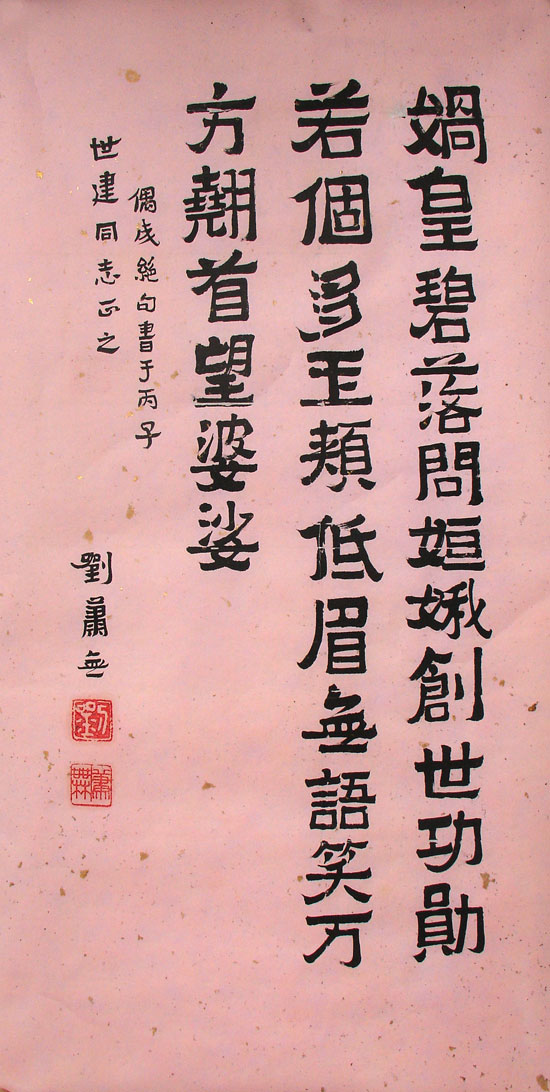 媧皇碧落問姮娥創世功勛
若個多玉頰低眉無語笑万
方翹首望婆娑
偶成絕句書于丙子
世建同志正之
劉蕭無
劉
蕭無